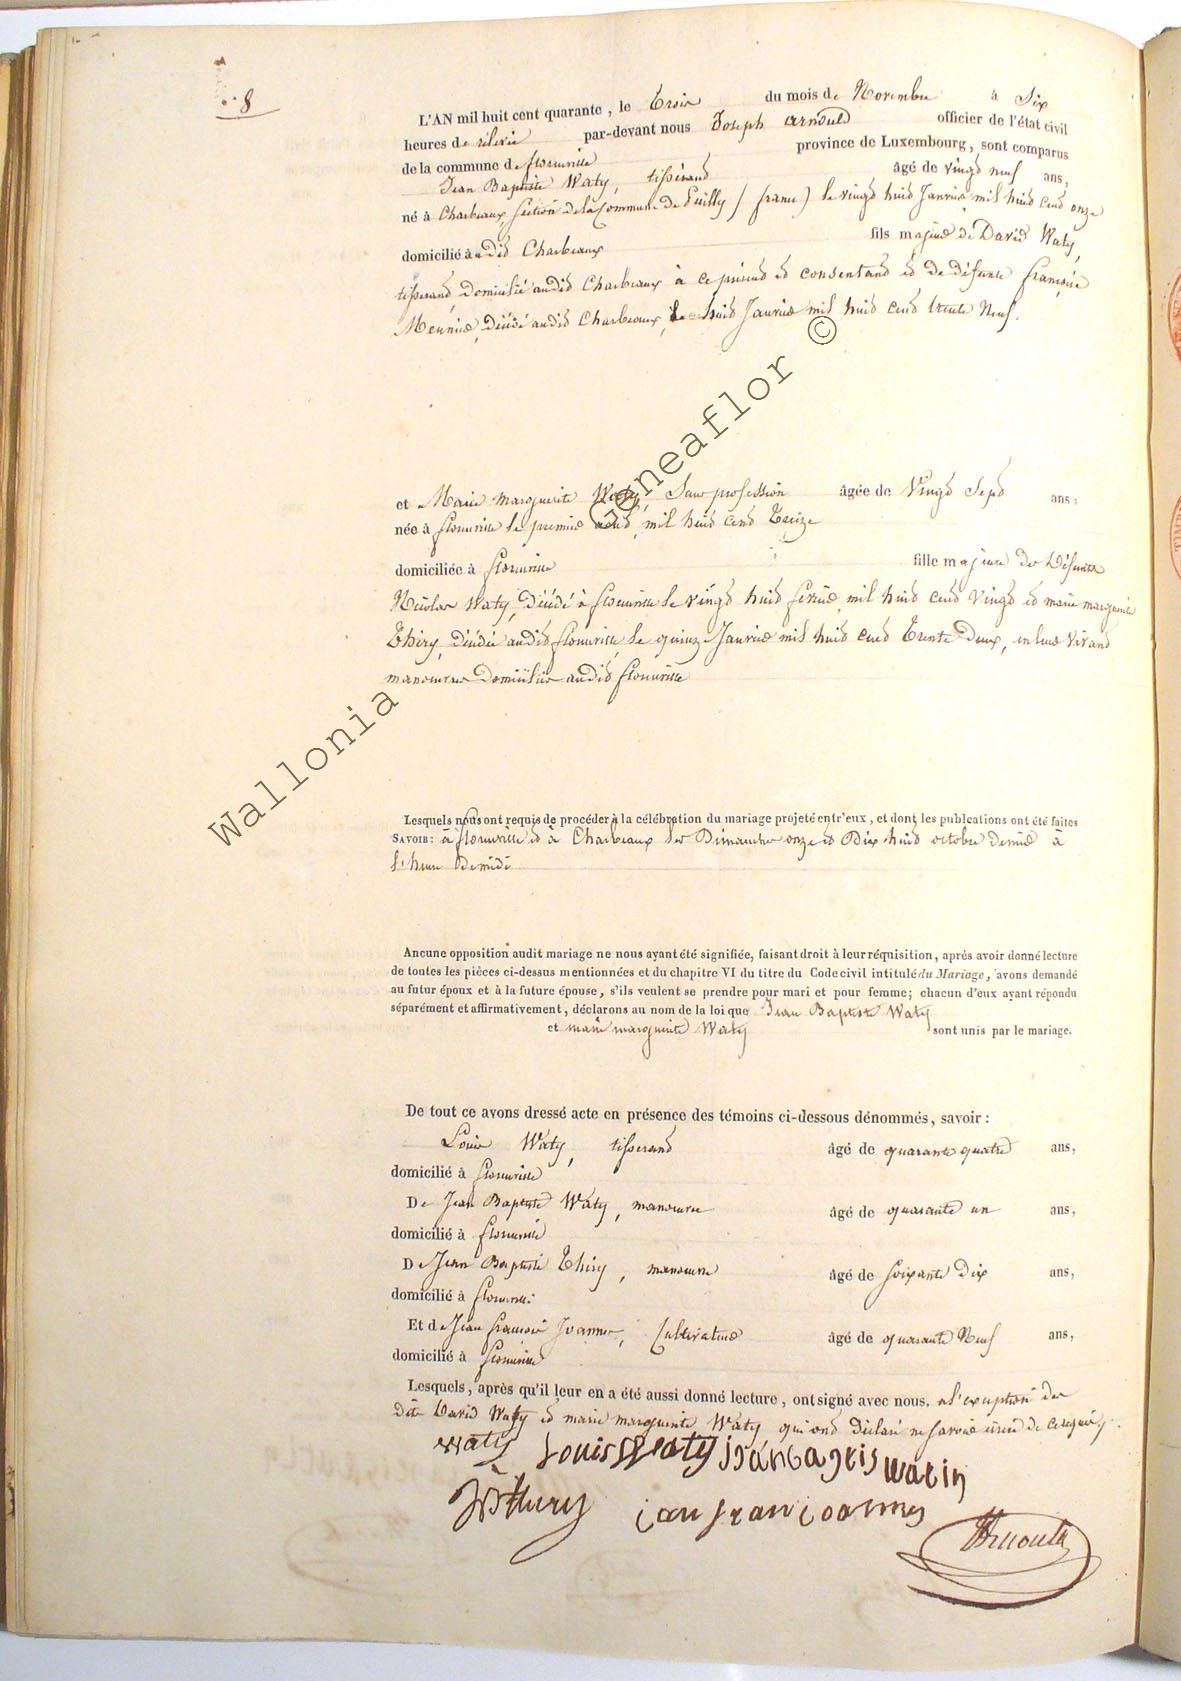 8
L'AN mil huit cent quarante, le Trois du mois de Novembre à Six
heures de relevée par-devant nous Joseph Arnould officier de l'état civil
de la commune de florenville province de Luxembourg, sont comparus
Jean Baptiste Waty, tisserand âgé de vingt neuf ans,
né à Charbeaux, section de la Commune de Puilly / france) le vingt huit Janvier mil huit cent onze
domicilié à udit Charbeaux fils majeur de David Waty,
tisserand, domicilié audit Charbeaux à ce présent et consentant et de défunte françoise
Meunier, décédé audit Charbeaux, le huit Janvier mil huit cent trente Neuf.
et Marie marguerite Waty, Sans profession âgée de Vingt Sept ans,
née à florenville le premier août, mil huit cent Treize
domiciliée à florenville fille majeure de Défunts
Nicolas Waty, Décédé à florenville le vingt huit février, mil huit cent Vingt et marie marguerite
Thiry, décédée audit florenville, le quinze Janvier mil huit cent Trente Deux, en leur vivant
manoeuvres domiciliés audit florenville
Wallonia Geneaflor ©
Lesquels nous ont requis de procéder à la célébration du mariage projeté entr'eux, et dont les publcations ont été faites
SAVOIR: à florenville et à Charbeaux les Dimanches onze et Dix huit octobre dernier à
l'heure de midi
Aucune opposition audit mariage ne nous ayant été signifiée, faisant droit à leur réquisition, après avoir donné lecture
de toutes les pièces ci-dessus mentionnées et du chapitre VI du titre du Code civil intitulé du Mariage, avons demandé
au futur époux et à la future épouse, s'ils veulent se prendre pour mari et pour femme; chacun d'eux ayant répondu
séparément et affirmativement, déclarons au nom de la loi que Jean Baptiste Waty
et marie marguerite Waty sont unis par le mariage.
De tout ce avons dressé acte en présence des témoins ci-dessous dénommés, savoir:
Louis Waty, tisserand âgé de quarante quatre ans,
domicilié à florenville
De Jean Baptiste Waty, manoeuvre âgé de quarante un ans,
domicilié à florenville
De Jean Baptiste Thiry, manoeuvre âgé de soixante dix ans,
domicilié à florenville
Et de Jean françois Joannes, Cultivateur âgé de quarante Neuf ans,
domicilié à florenville
Lesquels, après qu'il leur en a été aussi donné lecture, ont signé avec nous. a l'exception des
dits David Waty et marie marguerite Waty qui ont déclaré ne savoir écrire de ce requis.
Waty Louis Waty
JBThiry jean fran joannes Arnould